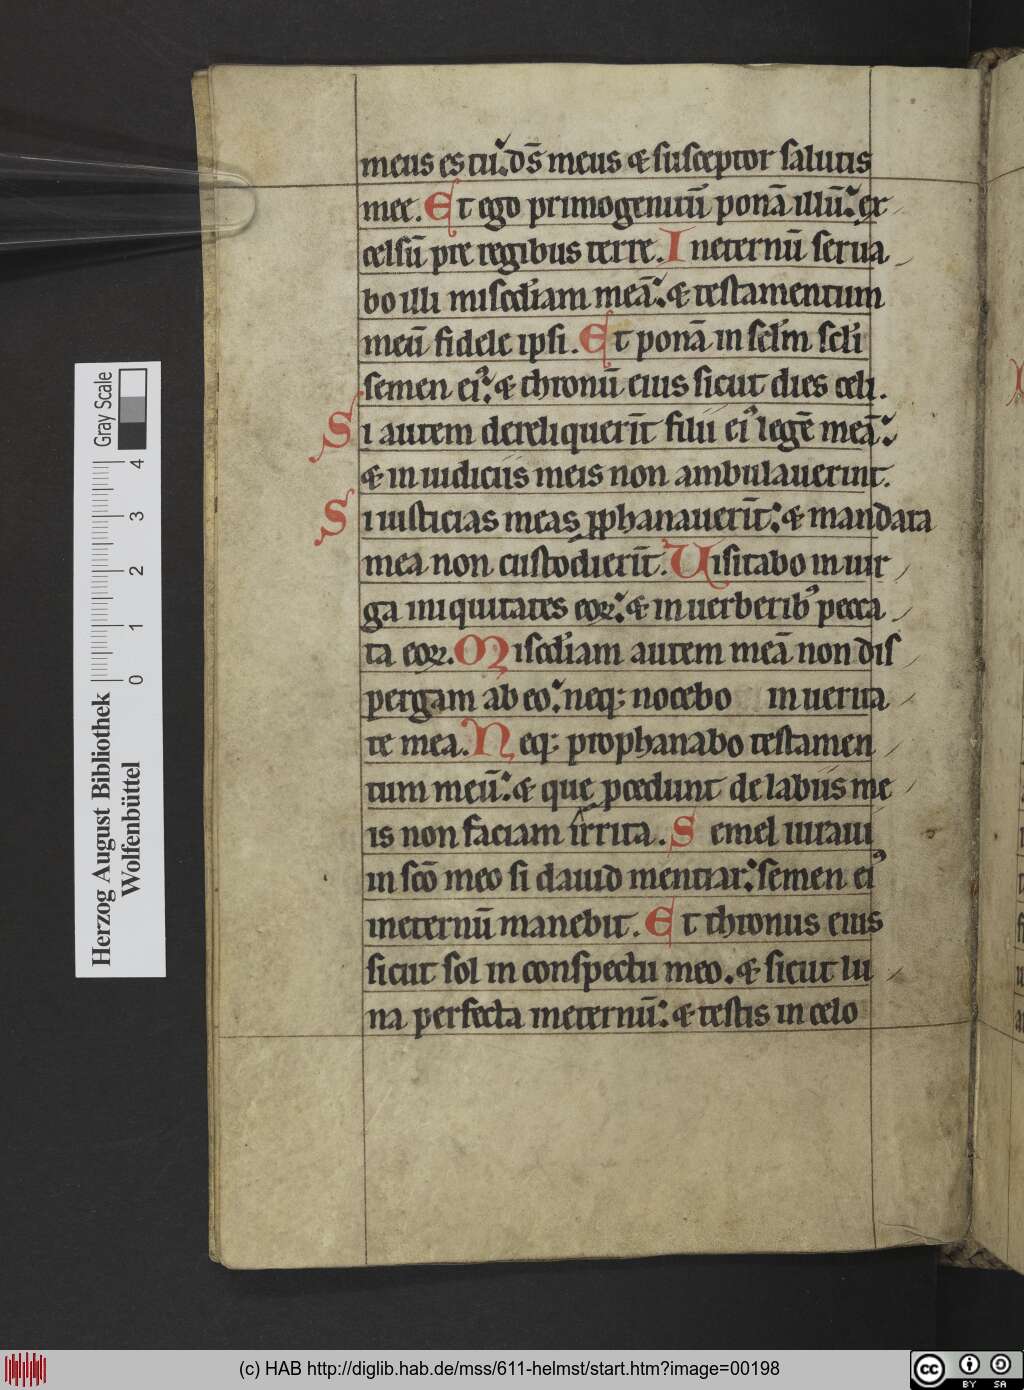 meus es tu. ds̄ meus & susceptor salutis
mee. Et ego primogenitū ponā illū: ex
celsū pre regibus terre. Ineternū serua
bo illi misc̄diam meā: & testamentum
meū fidele ipsi. Et ponā in sc̄lm sc̄li
semen eiꝰ: & thronū eius sicut dies celi.
Si autem dereliquerīt filii eiꝰ legē meā:
& in iudiciis meis non ambulauerint.
Si iusticias meas ꝓphanauerīt: & mandata
mea non custodierīt. Uisitabo in uir
ga iniquitates eoꝝ: & in uerberibꝰ pecca
ta eoꝝ. Misc̄diam autem meā non dis
pergam ab eo: neqꝫ nocebo in uerita
te mea. Neqꝫ prophanabo testamen
tum meū: & que ꝓcedunt de labiis me
is non faciam irrita. Semel iuraui
in sc̄o meo si dauid mentiar: semen eiꝰ
ineternū manebit. Et thronus eius
sicut sol in conspectu meo. & sicut lu
na perfecta ineternū: & testis in celo
Gray Scale
4 3 2 1 0
Herzog August Bibliothek
Wolfenbüttel
(c) HAB http://diglib.hab.de/mss/611-helmst/start.htm?image=00198
cc BY SA